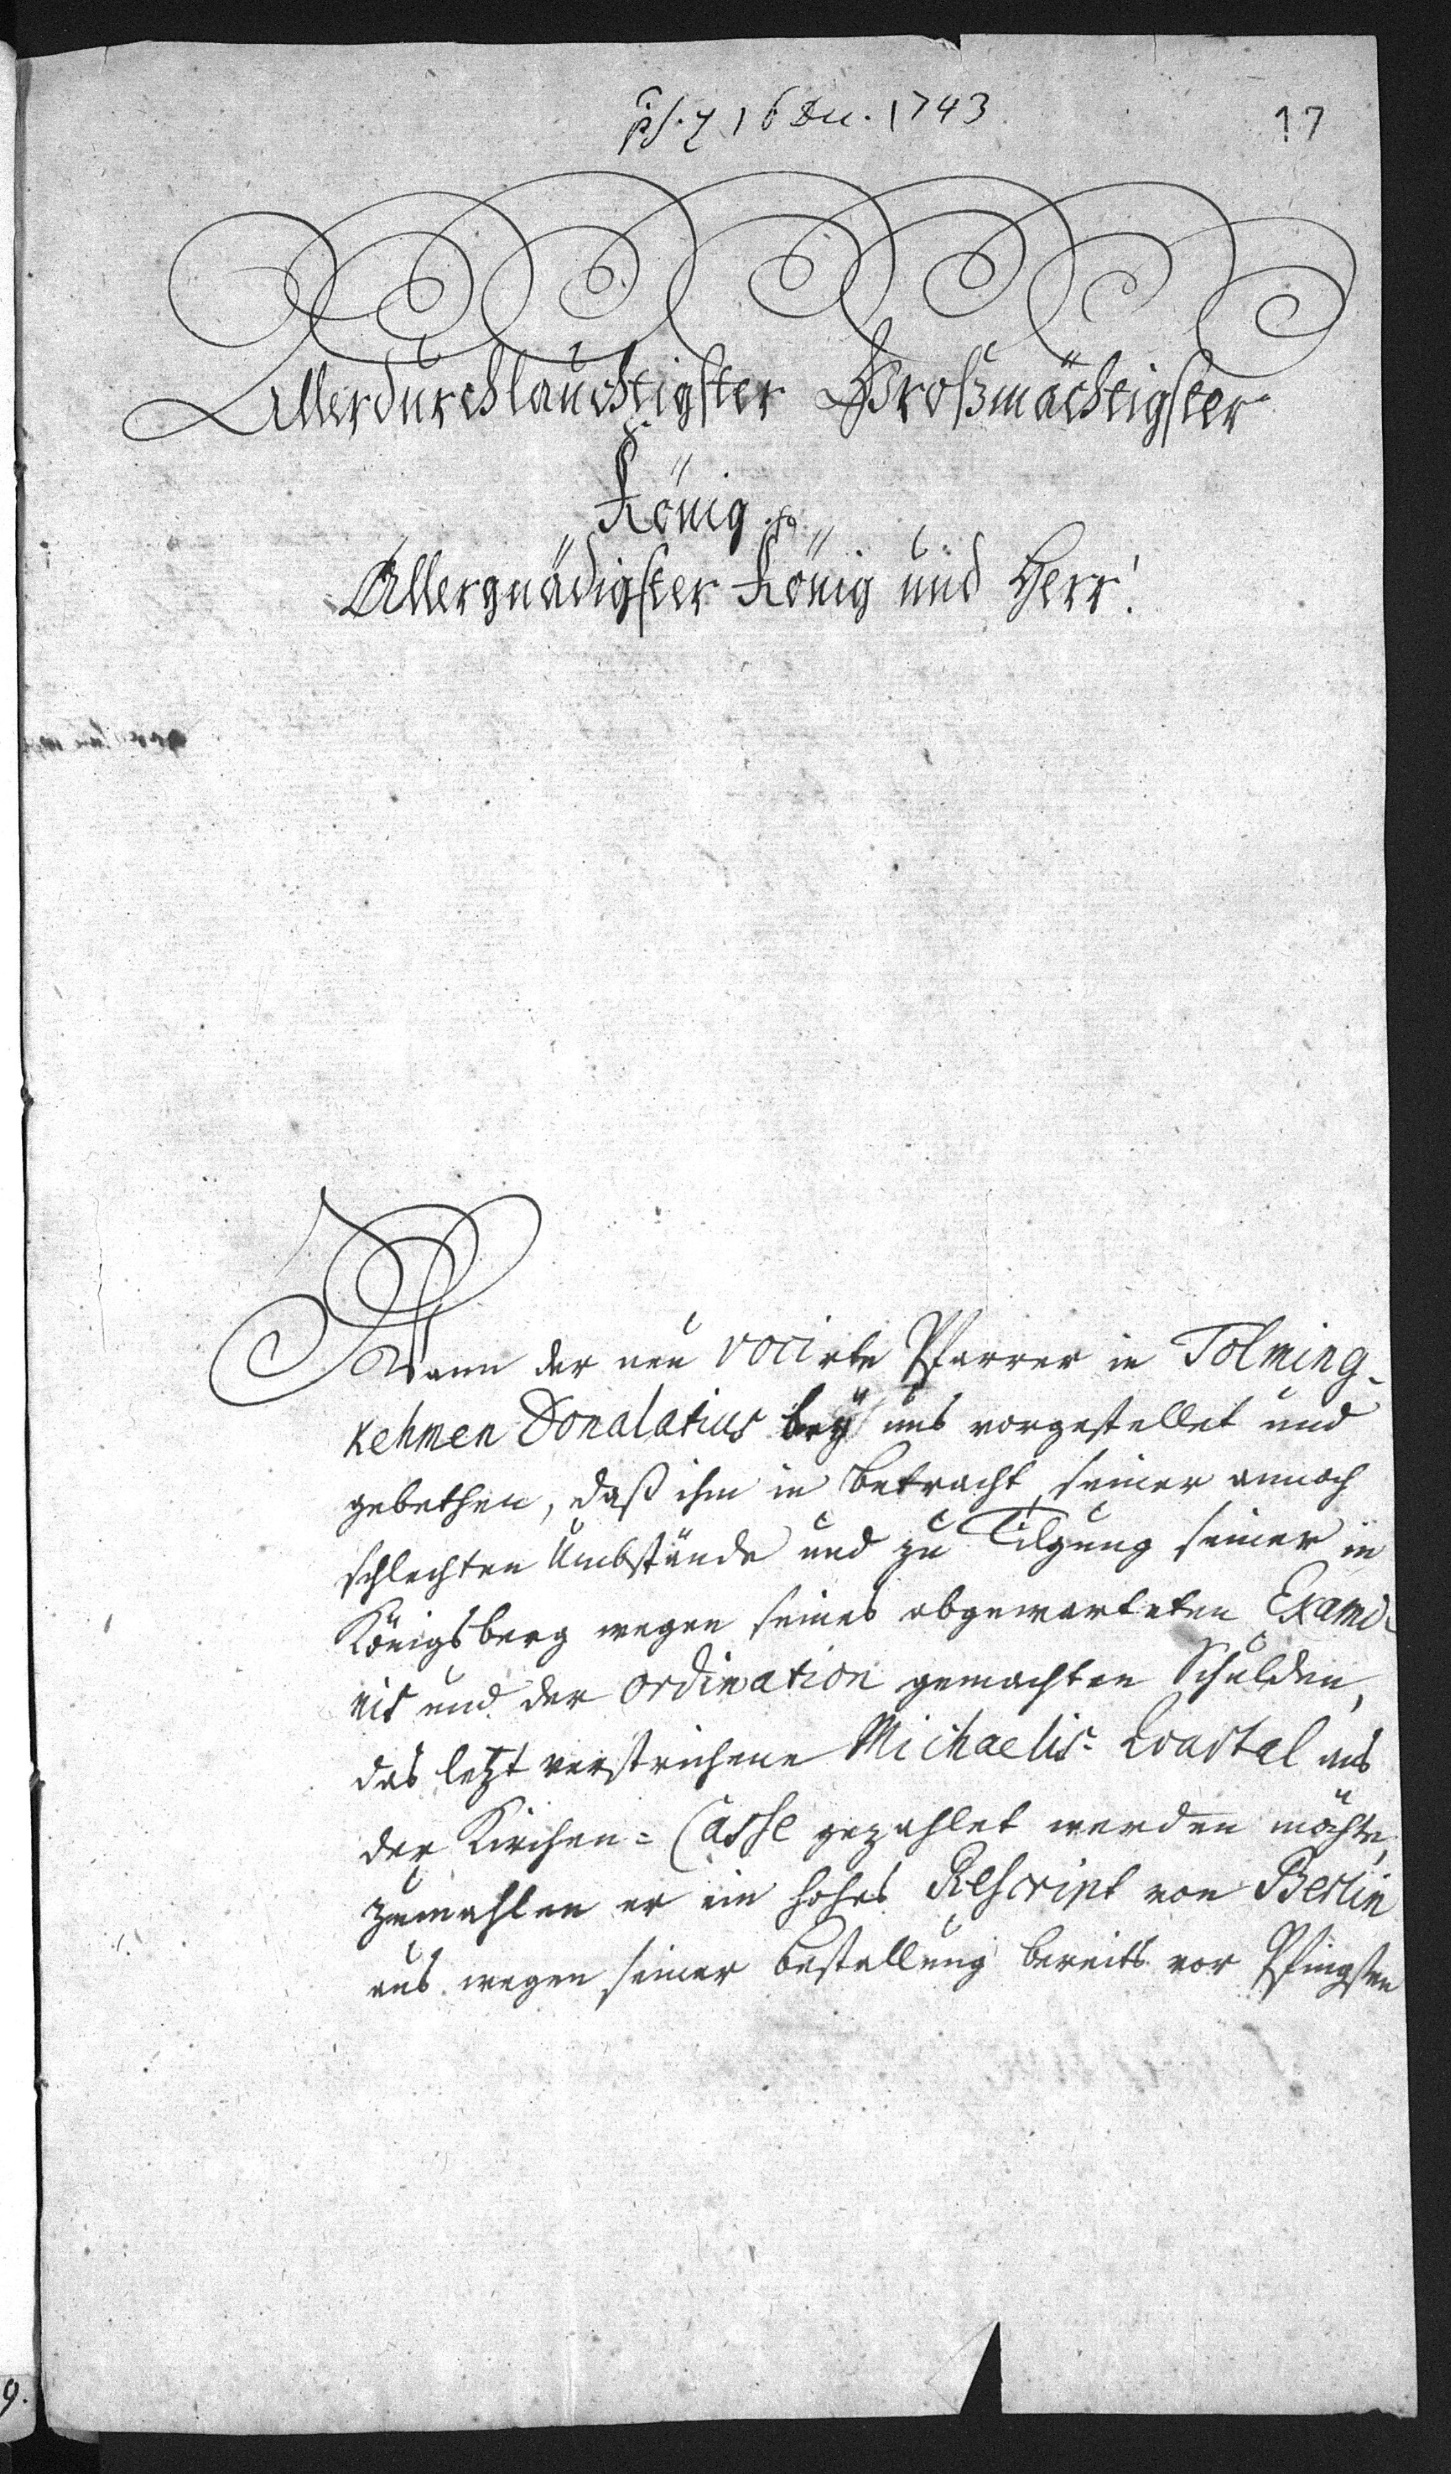 16 Dec. 1743
17
Allerdurchlauchtigster Großmächtigster
König
Allergnädigster König und Herr!
Wann der neu vocirte Pfarrer in Tolming-
kehmen Donalatius bey uns vorgestellet und
gebethen, daß ihm in Betracht seiner annoch
schlechten Umbstände und zu Tilgung seiner in
Königsberg wegen seines abgewarteten Exami-
nis und der ordination gemachten Schulden,
das letzt verstrichene Michaelis-Quartal aus
der Kirchen-Casse gezahlet werden möchte,
zumahlen er ein hohes Rescript von Berlin
aus wegen seiner Bestallung bereits vor Pfingsten
9.